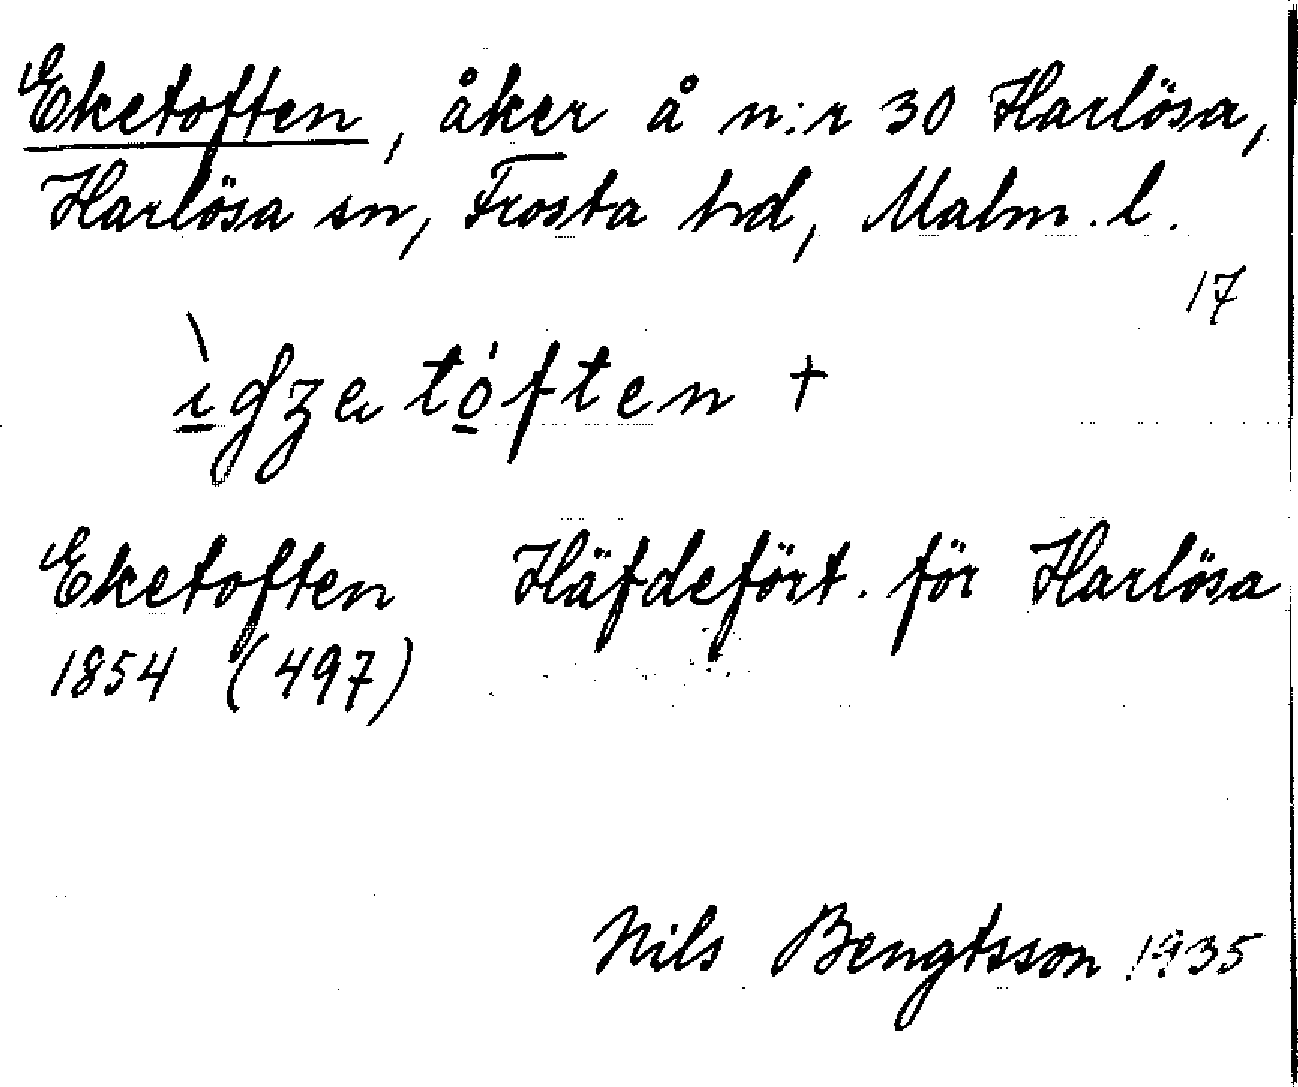 Eketoften, åker å n:r 30 Harlösa,
Harlösa sn, Frosta hd, Malm. l.
17
Eketoften Häfdefört. för Harlösa
1854 (497)
Nils Bengtsson 1935